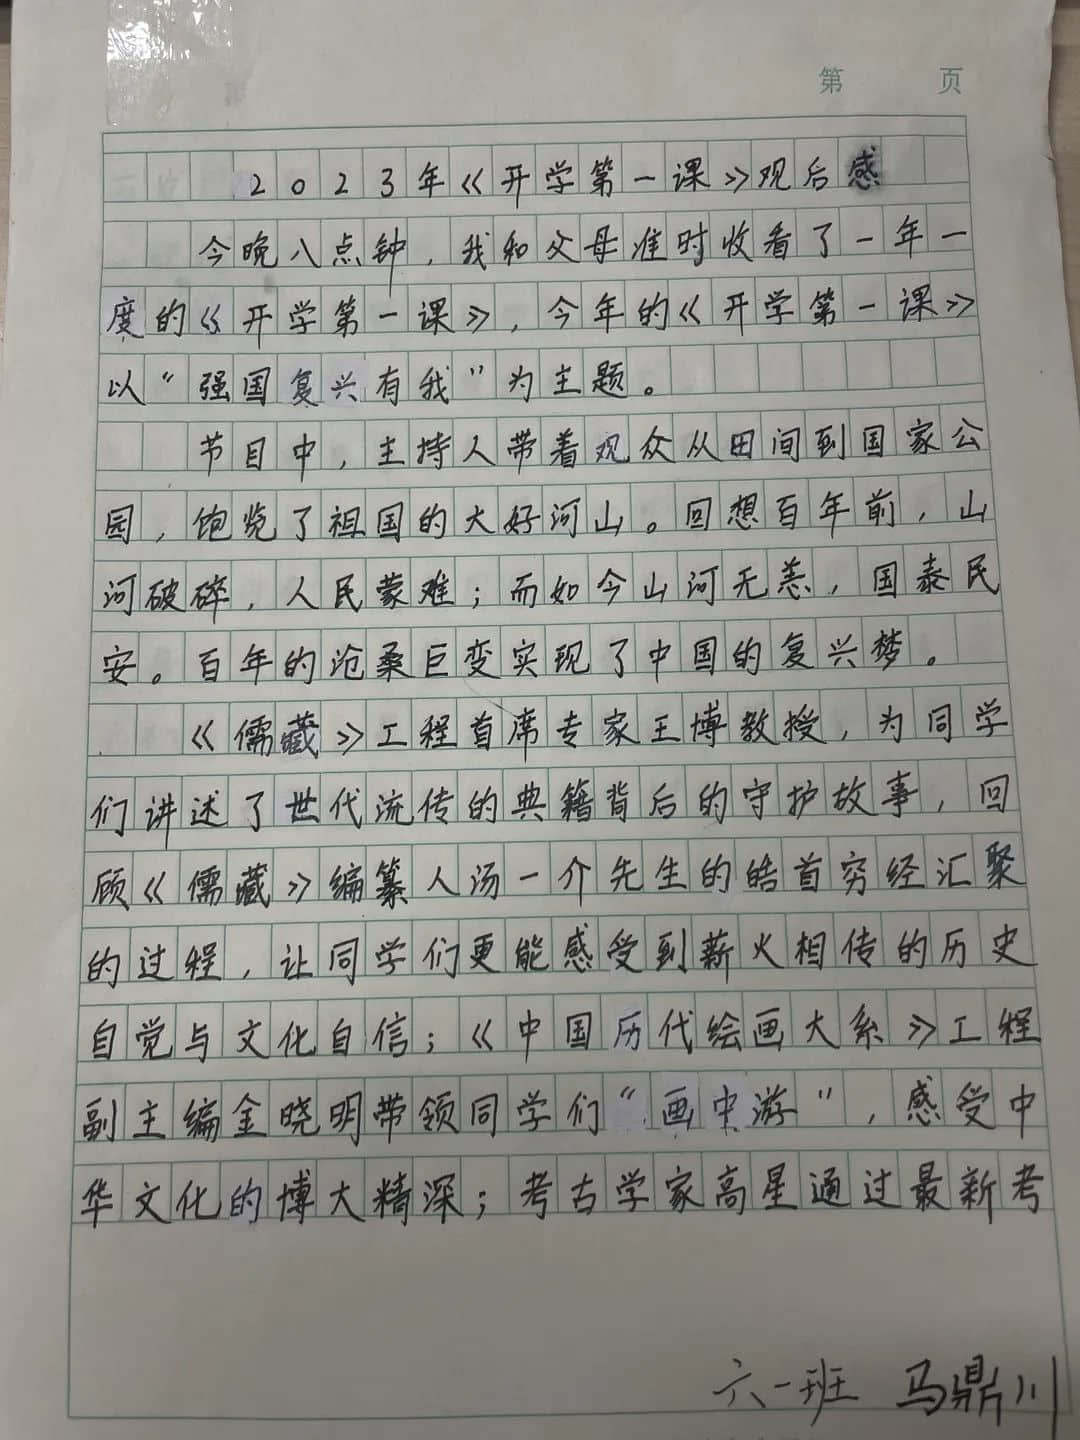 第 页
2023年《开学第一课》观后感
今晚八点钟，我和父母准时收看了一年一
度的《开学第一课》，今年的《开学第一课》
以“强国复兴有我”为主题。
节目中，主持人带着观众从田间到国家公
园，饱览了祖国的大好河山。回想百年前，山
河破碎，人民蒙难；而如今山河无恙，国泰民
安。百年的沧桑巨变实现了中国的复兴梦。
《儒藏》工程首席专家王博教授，为同学
们讲述了世代流传的典籍背后的守护故事，回
顾《儒藏》编纂人汤一介先生的皓首穷经汇聚
的过程，让同学们更能感受到薪火相传的历史
自觉与文化自信；《中国历代绘画大系》工程
副主编金晓明带领同学们“画中游”，感受中
华文化的博大精深；考古学家高星通过最新考
六一班 马鼎川